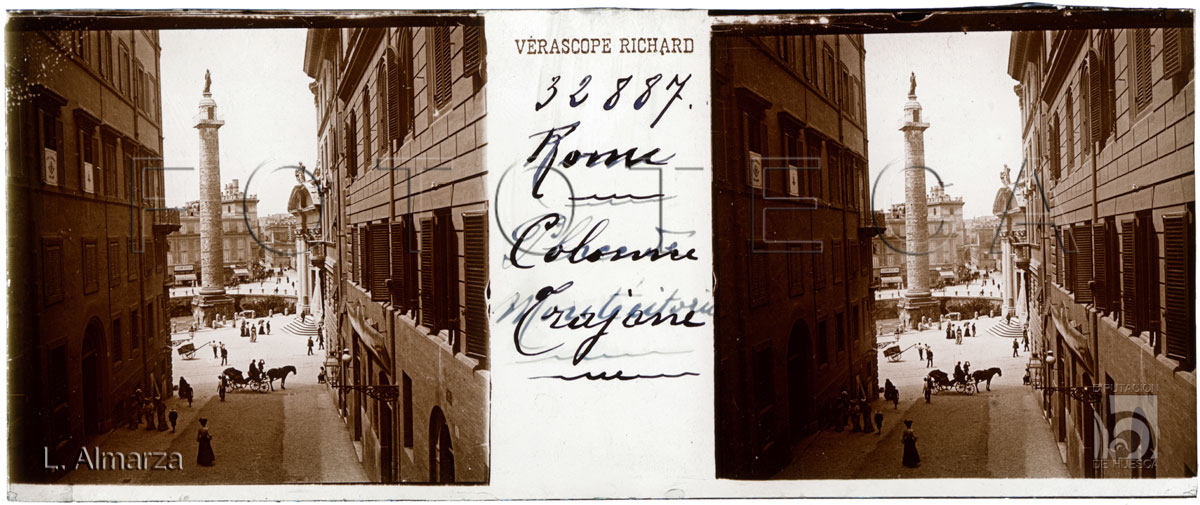 VÉRASCOPE RICHARD
32887.
Rome
Colonne
Trajane
FOTOTECA
L. Almarza
DIPUTACIÓN
DE HUESCA